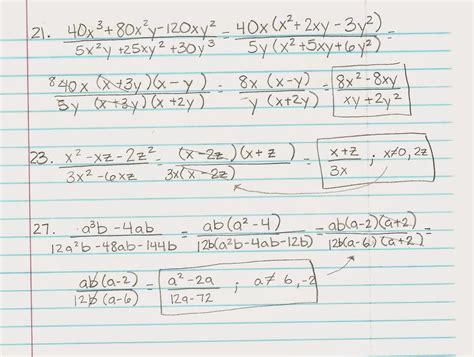 21. 40x³+80x²y-120xy² / 5x²y+25xy²+30y³ = 40x(x²+2xy-3y²) / 5y(x²+5xy+6y²) =
⁸40x (x+3y)(x-y) / 5y (x+3y)(x+2y) = 8x (x-y) / y (x+2y) = 8x²-8xy / xy+2y²
23. x²-xz-2z² / 3x²-6xz = (x-2z)(x+z) / 3x(x-2z) = x+z / 3x ; x≠0, 2z
27. a³b-4ab / 12a²b-48ab-144b = ab(a²-4) / 12b(a²b-4ab-12b) = ab(a-2)(a+2) / 12b(a-6)(a+2) =
ab(a-2) / 12b(a-6) = a²-2a / 12a-72 ; a≠ 6, -2